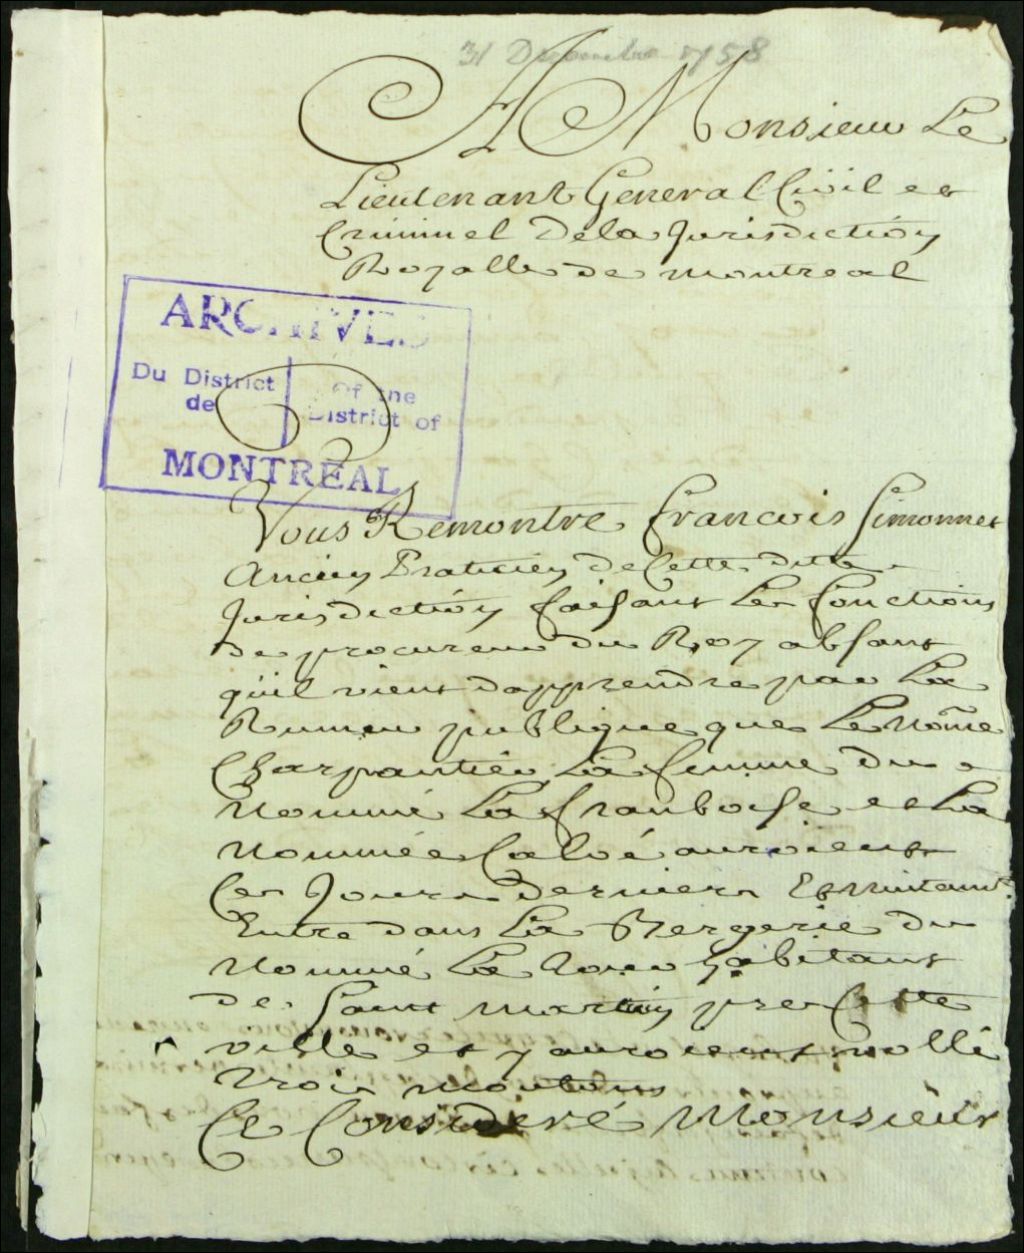 31 Decembre 1758
A Monsieur Le
Lieutenant General Civil et
Criminel De la Jurisdiction
Royalle de Montreal
ARCHIVES
Du District
de
Of the
District of
MONTREAL
Vous Remontre francois simonnet
Ancien Praticien de Cette ditte
Jurisdiction faisant Les fonctions
de procureur du Roy absant
quil vient dapprendre par La
Rumeur publique que Le Nom̃e
Charpantié La femme du
Nommé La franboise et La
Nommée Calvé auroient
Ces Jours derniers
Entre dans La Bergerie du
Nommé Le habitant
de Saint martin pres Cette
ville et y auroient vollé
trois moutons
Ce Consideré Monsieur